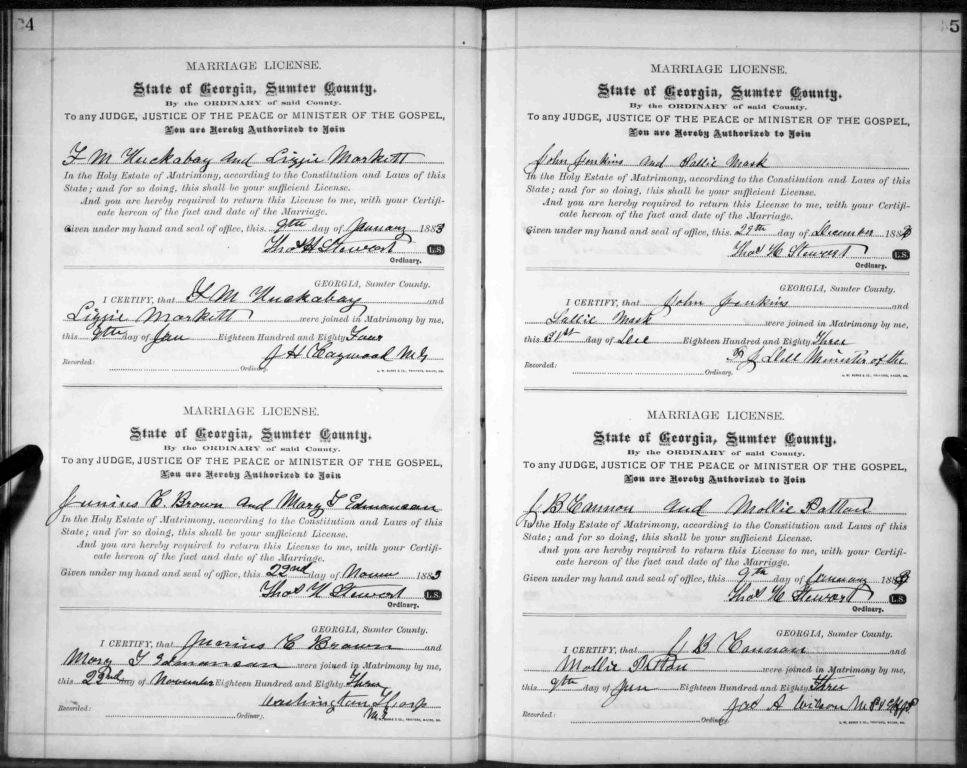 24
MARRIAGE LICENSE.
State of Georgia, Sumter County.
By the ORDINARY of said County.
To any JUDGE, JUSTICE OF THE PEACE or MINISTER OF THE GOSPEL,
You are Hereby Authorized to Join
F M Huckabay and Lizzie Markett
In the Holy Estate of Matrimony, according to the Constitution and Laws of this
State; and for so doing, this shall be your sufficient License.
And you are hereby required to return this License to me, with your Certifi-
cate hereon of the fact and date of the Marriage.
Given under my hand and seal of office, this 9th day of January 1883
Thos H Stewart L.S.
Ordinary.
GEORGIA, Sumter County.
I CERTIFY, that F M Huckabay and
Lizzie Markett were joined in Matrimony by me,
this 9th day of Jan Eighteen Hundred and Eighty Four
J H Haywood M G
Recorded: Ordinary.
MARRIAGE LICENSE.
State of Georgia, Sumter County.
By the ORDINARY of said County.
To any JUDGE, JUSTICE OF THE PEACE or MINISTER OF THE GOSPEL,
You are Hereby Authorized to Join
Junius C. Brown and Mary T Edmanson
In the Holy Estate of Matrimony, according to the Constitution and Laws of this
State; and for so doing, this shall be your sufficient License.
And you are hereby required to return this License to me, with your Certifi-
cate hereon of the fact and date of the Marriage.
Given under my hand and seal of office, this 22nd day of 1883
Thos H Stewart L.S.
Ordinary.
GEORGIA, Sumter County.
I CERTIFY, that Junius C Brown and
Mary T Edmanson were joined in Matrimony by me,
this 22nd day of November Eighteen Hundred and Eighty Three
M.G.
Recorded: Ordinary.
5
MARRIAGE LICENSE.
State of Georgia, Sumter County.
By the ORDINARY of said County.
To any JUDGE, JUSTICE OF THE PEACE or MINISTER OF THE GOSPEL,
You are Hereby Authorized to Join
John Jenkins and Sallie Mask
In the Holy Estate of Matrimony, according to the Constitution and Laws of this
State; and for so doing, this shall be your sufficient License.
And you are hereby required to return this License to me, with your Certifi-
cate hereon of the fact and date of the Marriage.
Given under my hand and seal of office, this 29th day of December 188
Thos H Stewart L.S.
Ordinary.
GEORGIA, Sumter County.
I CERTIFY, that John Jenkins and
Sallie Mask were joined in Matrimony by me,
this 31st day of Dec Eighteen Hundred and Eighty Three
Minister of the
Recorded: Ordinary.
MARRIAGE LICENSE.
State of Georgia, Sumter County.
By the ORDINARY of said County.
To any JUDGE, JUSTICE OF THE PEACE or MINISTER OF THE GOSPEL,
You are Hereby Authorized to Join
J B Cannon and Mollie Patton
In the Holy Estate of Matrimony, according to the Constitution and Laws of this
State; and for so doing, this shall be your sufficient License.
And you are hereby required to return this License to me, with your Certifi-
cate hereon of the fact and date of the Marriage.
Given under my hand and seal of office, this 9th day of January 188
Thos H Stewart L.S.
Ordinary.
GEORGIA, Sumter County.
I CERTIFY, that J B Cannon and
Mollie Patton were joined in Matrimony by me,
this 9th day of Jan Eighteen Hundred and Eighty Three
Jas A Wilson
Recorded: Ordinary.